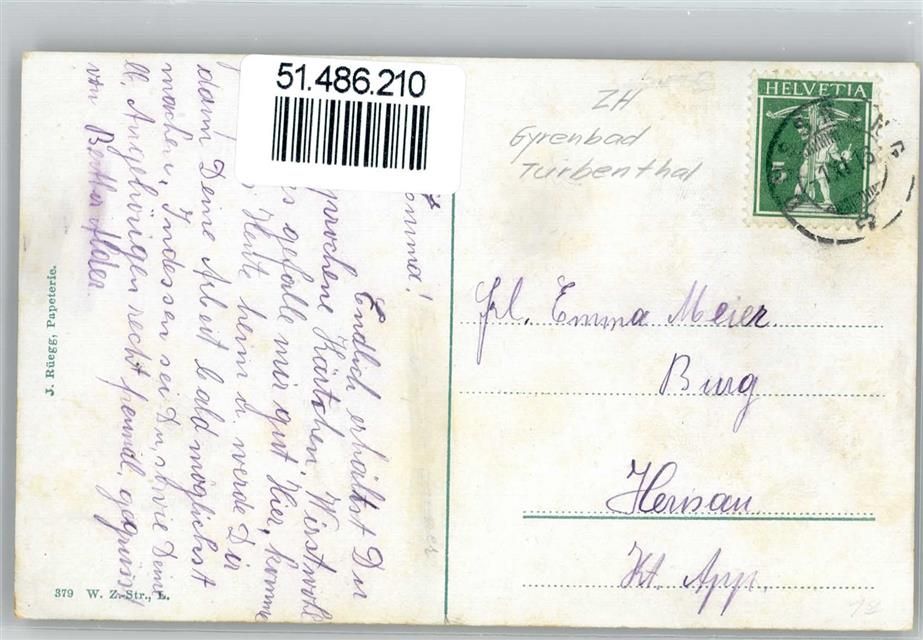 51.486.210
ZH
Gyrenbad
Turbenthal
HELVETIA
5
Emma!
Endlich erhältst Du
sprochene Kärtchen. Wirst wohl
es gefalle mir gut hier, komme
Heute heim u. werde Dir
dann Deine Arbeit bald möglichst
machen. Indessen sei Du sowie Deine
ll. Angehörigen recht freundl. gegrüsst
von Bertha
Frl. Emma Meier
Burg
Herisau
Kt. App.
J. Rüegg, Papeterie.
379 W. Z.-Str., L.